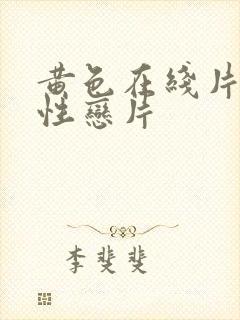 黄色在綫片
性戀片
李斐斐